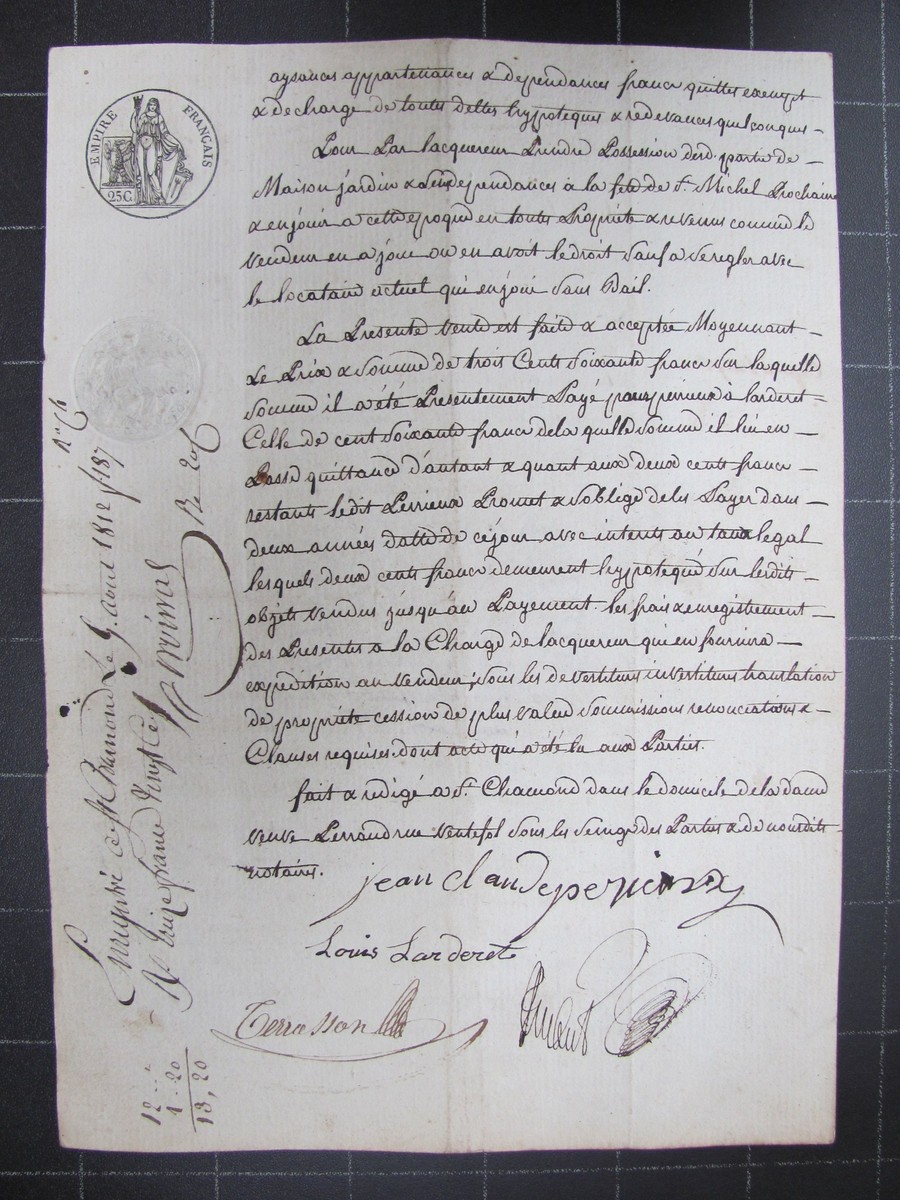 EMPIRE FRANÇAIS
25C.
aysances appartenances & dependances franc quittes exempt
& decharge de toutes dettes hyppoteques & redevances quelconques
Pour Par lacquereur Prendre Possession desd. partie de
Maison jardin & dependances a la fete de St. Michel Prochaine
& en jouir a cette epoque en toute Propriete & revenus comme le
vendeur en a joui ou en avoit le droit sauf a se regler avec
le locataire actuel qui en jouit sans Bail.
La Presente vente est faite & acceptée Moyennant
Le Prix & Somme de trois Cents Soixante francs Sur laquelle
Somme il a été Presentement Payé par perrieux à Larderet
Celle de cent Soixante francs de la quelle Somme il lui en
Passe quittance d'autant & quant aux deux cents francs
restants ledit Perrieux Promet & S'oblige de les Payer dans
deux années datte de ce jour avec interets au taux legal
lesquels deux cents francs demeurent hyppotequé Sur lesdits
objets vendus jusqu'au Payement. les frais & enregistrement
des Presentes a la Charge de lacquereur qui en fournira
expedition au vendeur; Sous les devestitures investitures translation
de propriete cession de plus valeur Soumissions renonciations &
Clauses requises. dont acte qui a été lu aux Parties.
fait & redigé a St. Chamond dans le domicile de la dame
veuve Perraud rue ventefol Sous les Seings des Parties & de nousdits
notaires.
jean claude perieux
Louis Larderet
Terrasson
Enregistré a St Chamond Le 9. avril 1812 f. 187
12
1 . 20
13, 20